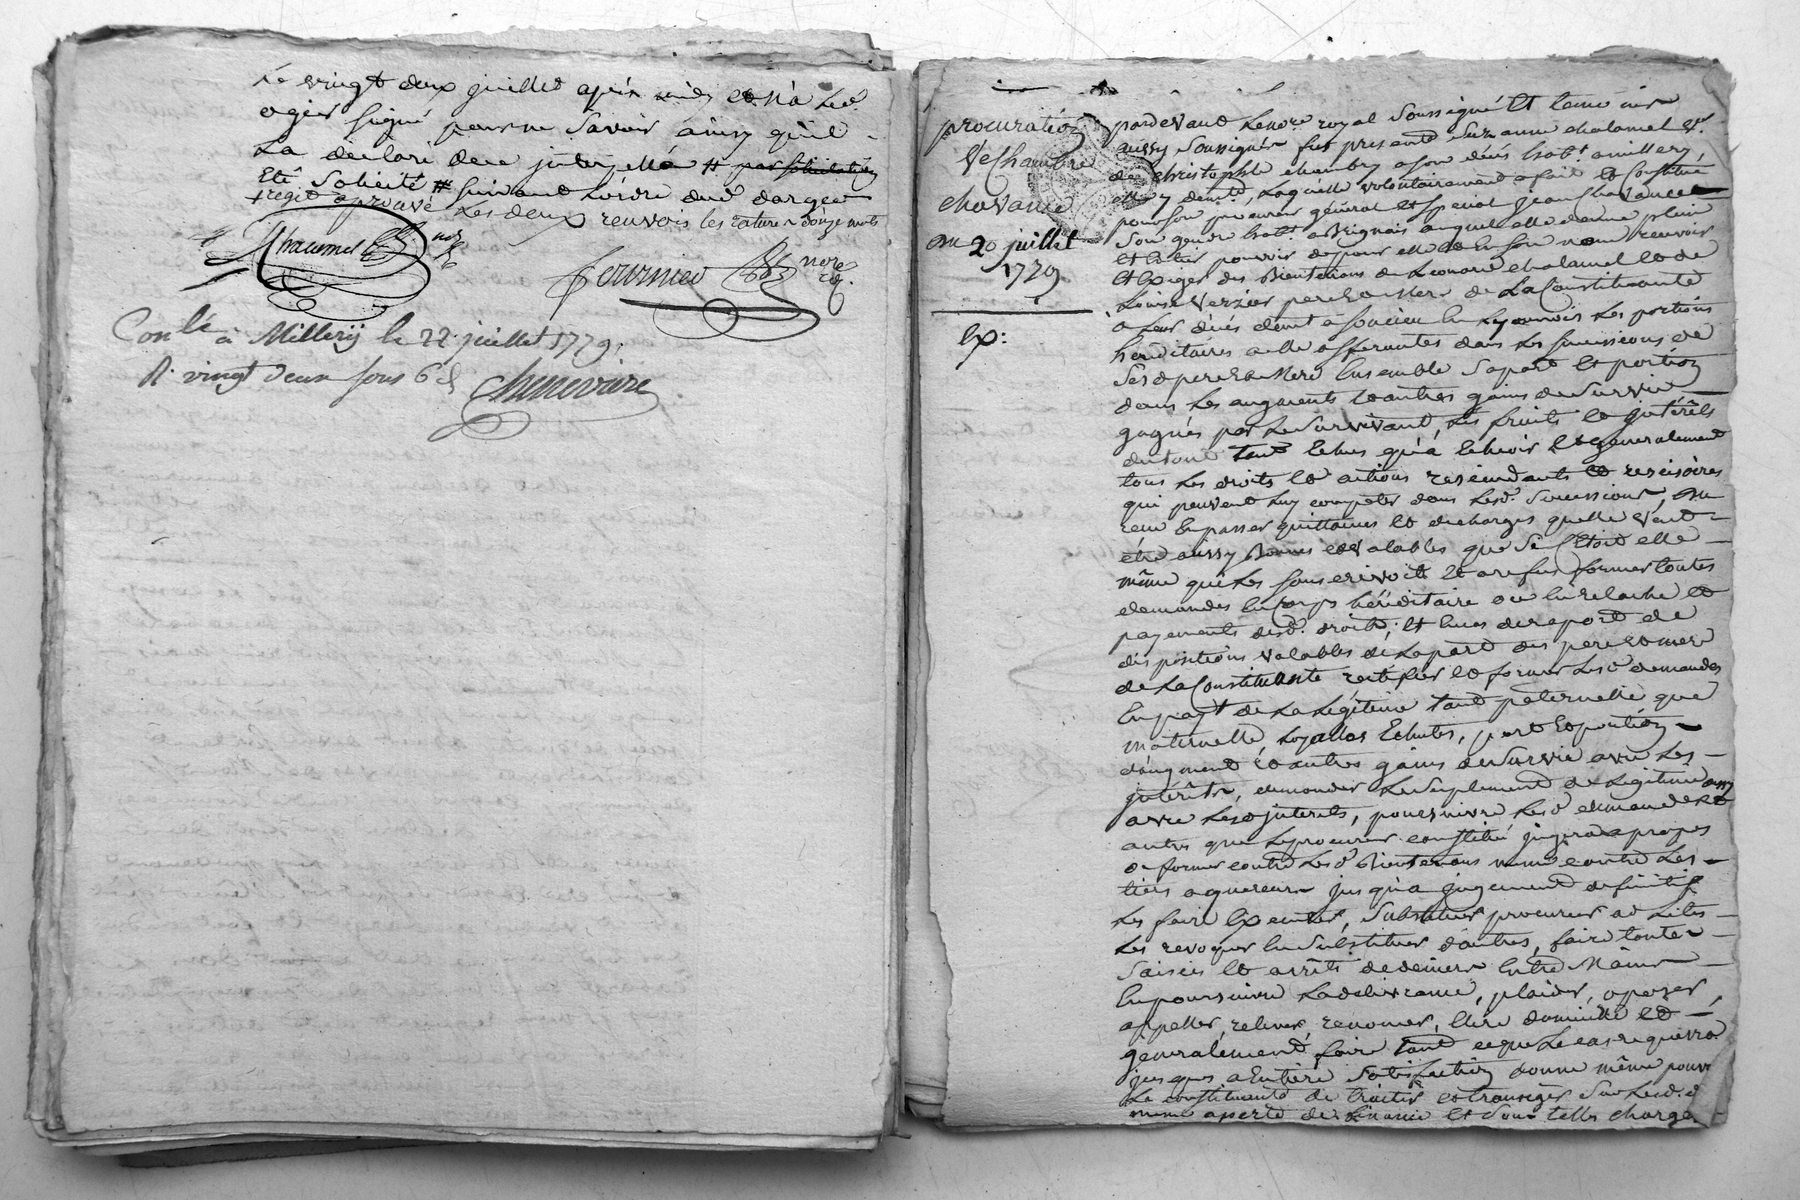 Le vingt deux juillet après midy et n'a led.
oger signé pour ne savoir ainsy qu'il
la déclaré de ce interpellé # par solicitation
Eté solicité # suivant l'ordre dud dargere
+regit aprouvé les deux renvois les rature douze mots
Chaumel nore
fournier nore roy.
Conlé à Millery le 22 juillet 1779.
R. vingt deux sous 6 d Cheneviere
procuration
Ve Chambre
chavance
du 20 juillet
1779
Ex:
pardevant Le nore. royal soussigné Et temoins
aussy soussignés fut presente Suzanne chalamel Ve.
de christophle chambry a son décés habt. a millery,
elle y demt., Laquelle volontairement a fait et Constitué
pour son procureur général et special Jean Chavance
Son gendre habt. a Brignais auquel elle donne plein
et Entier pouvoir de pour elle et En son nom recevoir
et Exiger des Bientenans de Leonard chalamel et de
Louise Verzier pere et Mere de La Constituante
a Leur décés demt a soucieu En Lyonnois Les portions
hereditaires a elle afferantes dans Les successions de
Sesd pere et Mere Ensemble sa part Et portion
dans Les augments et autres gains de survie
gagnés par Le survivant, Les fruits et intérêts
du tout tant Echus qu'a Echeoir et generalement
tous Les droits et actions rescindants et rescisoires
qui peuvent Luy compéter dans Lesd. successions, du
recu En passer quittances et decharges qu'elle veut
être aussy Bonnes et valables que Si C'étoit elle
même qui Les souscrivoit Et a refus former toutes
demandes En Corps héréditaire ou En relache et
payements desd. droits; Et En cas de report de
dispositions valables de La part des pere et mere
de La Constituante rectifier et former Lesd demandes
En payt de La Légitime tant paternelle que
maternelle, Loyalles Echutes, part Et portion
d'augment et autres gains de survie avec Les
intérêts, demander Le suplement de Legitime aussy
avec Lesd interets, poursuivre Lesd demandes et
autres que Le procureur constitué jugera a propos
de former contre Lesd Bientenans même contre Les
tiers aquereurs jusqu'a jugement definitif
Les faire Executer, substituer procureur ad Lites
Les revoquer En substituer d'autres, faire toutes
saisies et arrêts de deniers Entre Mains
En poursuivre La delivrance, plaider, oposer,
appeller, relever, renoncer, Elire domicille et
generalement faire tout ce que Le cas requerra
jusques a Entiere satisfaction donne même pouvr
La constituante de traiter et transiger sur Lesd. d
meme a perte de finance Et sous telles charges